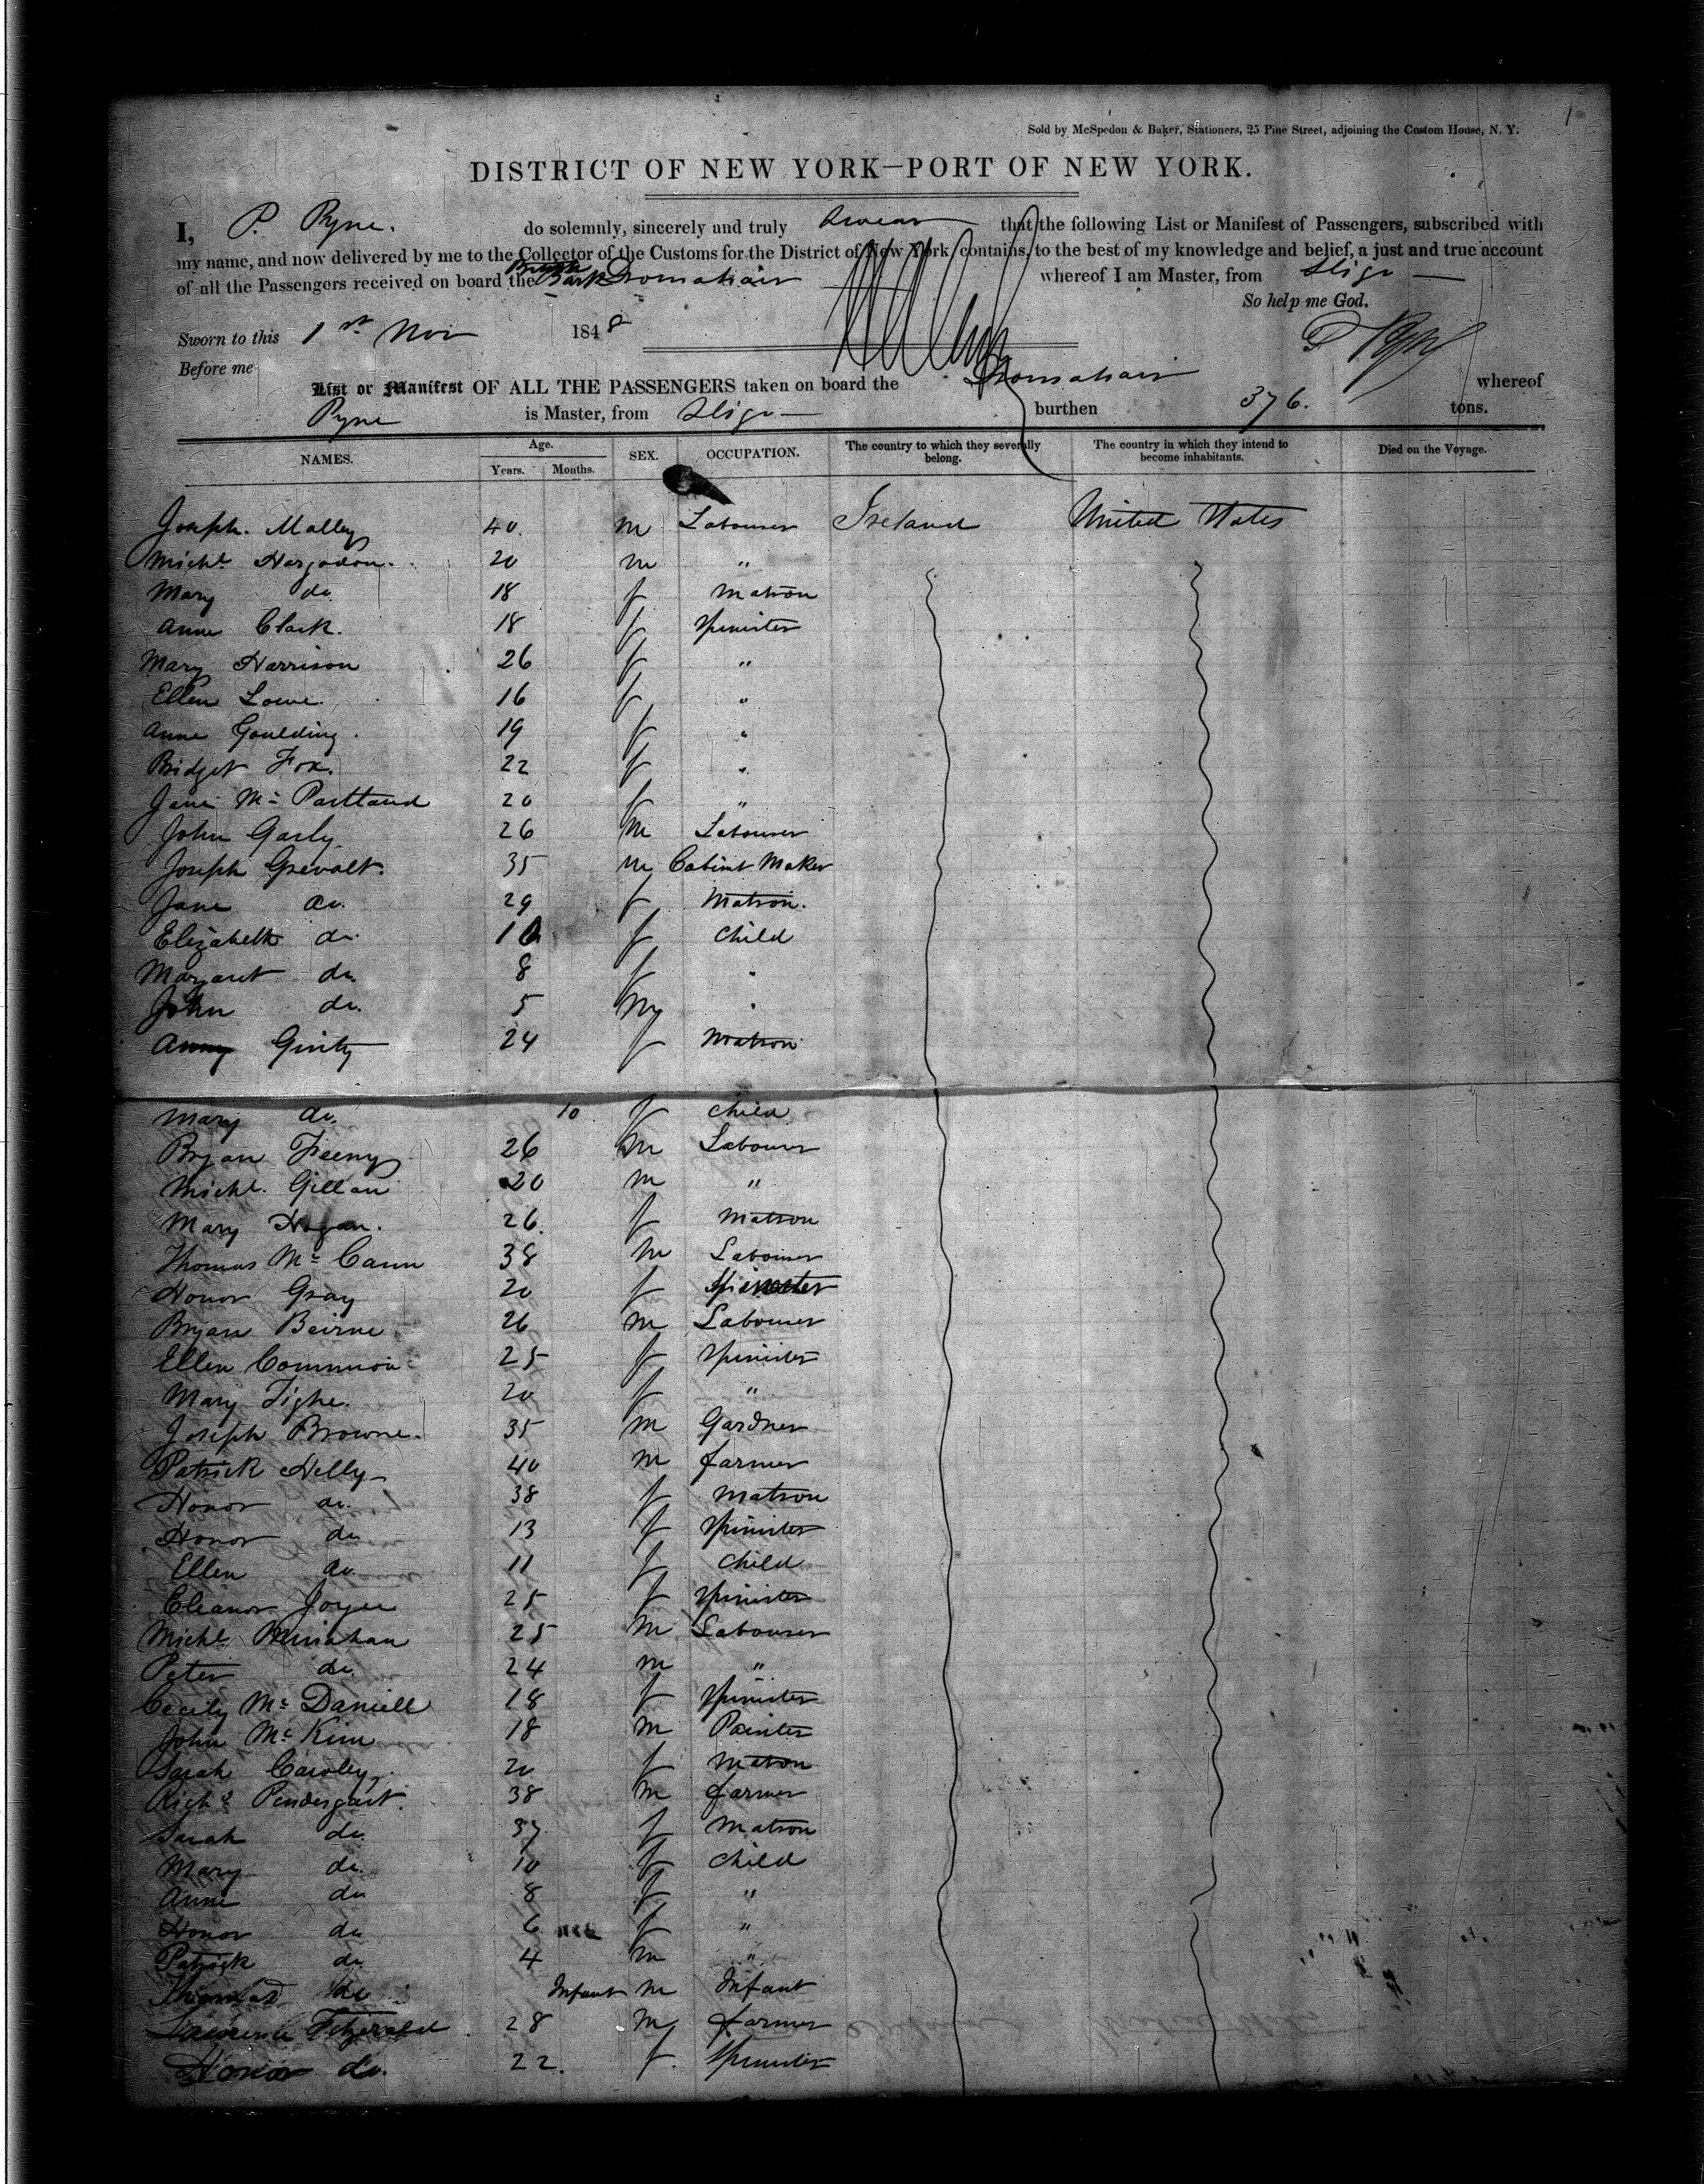 1
Sold by McSpedon & Baker, Stationers, 25 Pine Street, adjoining the Custom House, N. Y.
DISTRICT OF NEW YORK—PORT OF NEW YORK.
I, P. Pyne. do solemnly, sincerely and truly swear that the following List or Manifest of Passengers, subscribed with
my name, and now delivered by me to the Collector of the Customs for the District of New York, contains, to the best of my knowledge and belief, a just and true account
of all the Passengers received on board the British Bark Dromahair whereof I am Master, from Sligo
So help me God.
Sworn to this 1st Nov 1848 P Pyne
Before me
List or Manifest OF ALL THE PASSENGERS taken on board the Dromahair whereof
Pyne is Master, from Sligo burthen 376. tons.
NAMES. Age. Years. Months. SEX. OCCUPATION. The country to which they severally belong. The country in which they intend to become inhabitants. Died on the Voyage.
Joseph. Malley 40. m Labourer Ireland United States
Michl. Hargadon. 20 m "
Mary do. 18 f Matron
Anne Clark. 18 f Spinster
Mary Harrison 26 f "
Ellen Lowe. 16 f "
Anne Goulding. 19 f "
Bridget Fox. 22 f "
Jane Mc Partland 20 f "
John Garly 26 m Labourer
Joseph Grevalt. 35 m Cabint Maker
Jane do. 29 f Matron.
Elizabeth do. f Child
Margaret do. 8 f "
John do. 5 m "
Ginty 24 f Matron
Mary do. 10 f Child
Bryan Feeny 26 m Labourer
Michl. Gillan 20 m "
Mary Hogan. 26. f Matron
Thomas Mc Cann 38 m Labourer
Honor Gray 20 f Spinster
Bryan Beirne 26 m Labourer
Ellen Commion 25 f Spinster
Mary Tighe. 20 f "
Joseph Browne. 35 m Gardner
Patrick Helly 40 m farmer
Honor do. 38 f Matron
Honor do 13 f Spinster
Ellen do. 11 f Child
Eleanor Joyce 25 f Spinster
Michl. Minahan 25 m Labourer
Peter do. 24 m "
Cecily Mc Daniell 18 f Spinster
John Mc Kim 18 m Painter
Sarah Cawley 20 f Matron
Richd. Pendergast. 38 m farmer
Sarah do. 37 f Matron
Mary do. 10 f Child
Anne do 8 f "
Honor do 6 f "
Patrick do. 4 m "
Thomas do Infant m Infant
Lawrence Fitzgerald 28 m farmer
Honor do. 22. f. Spinster